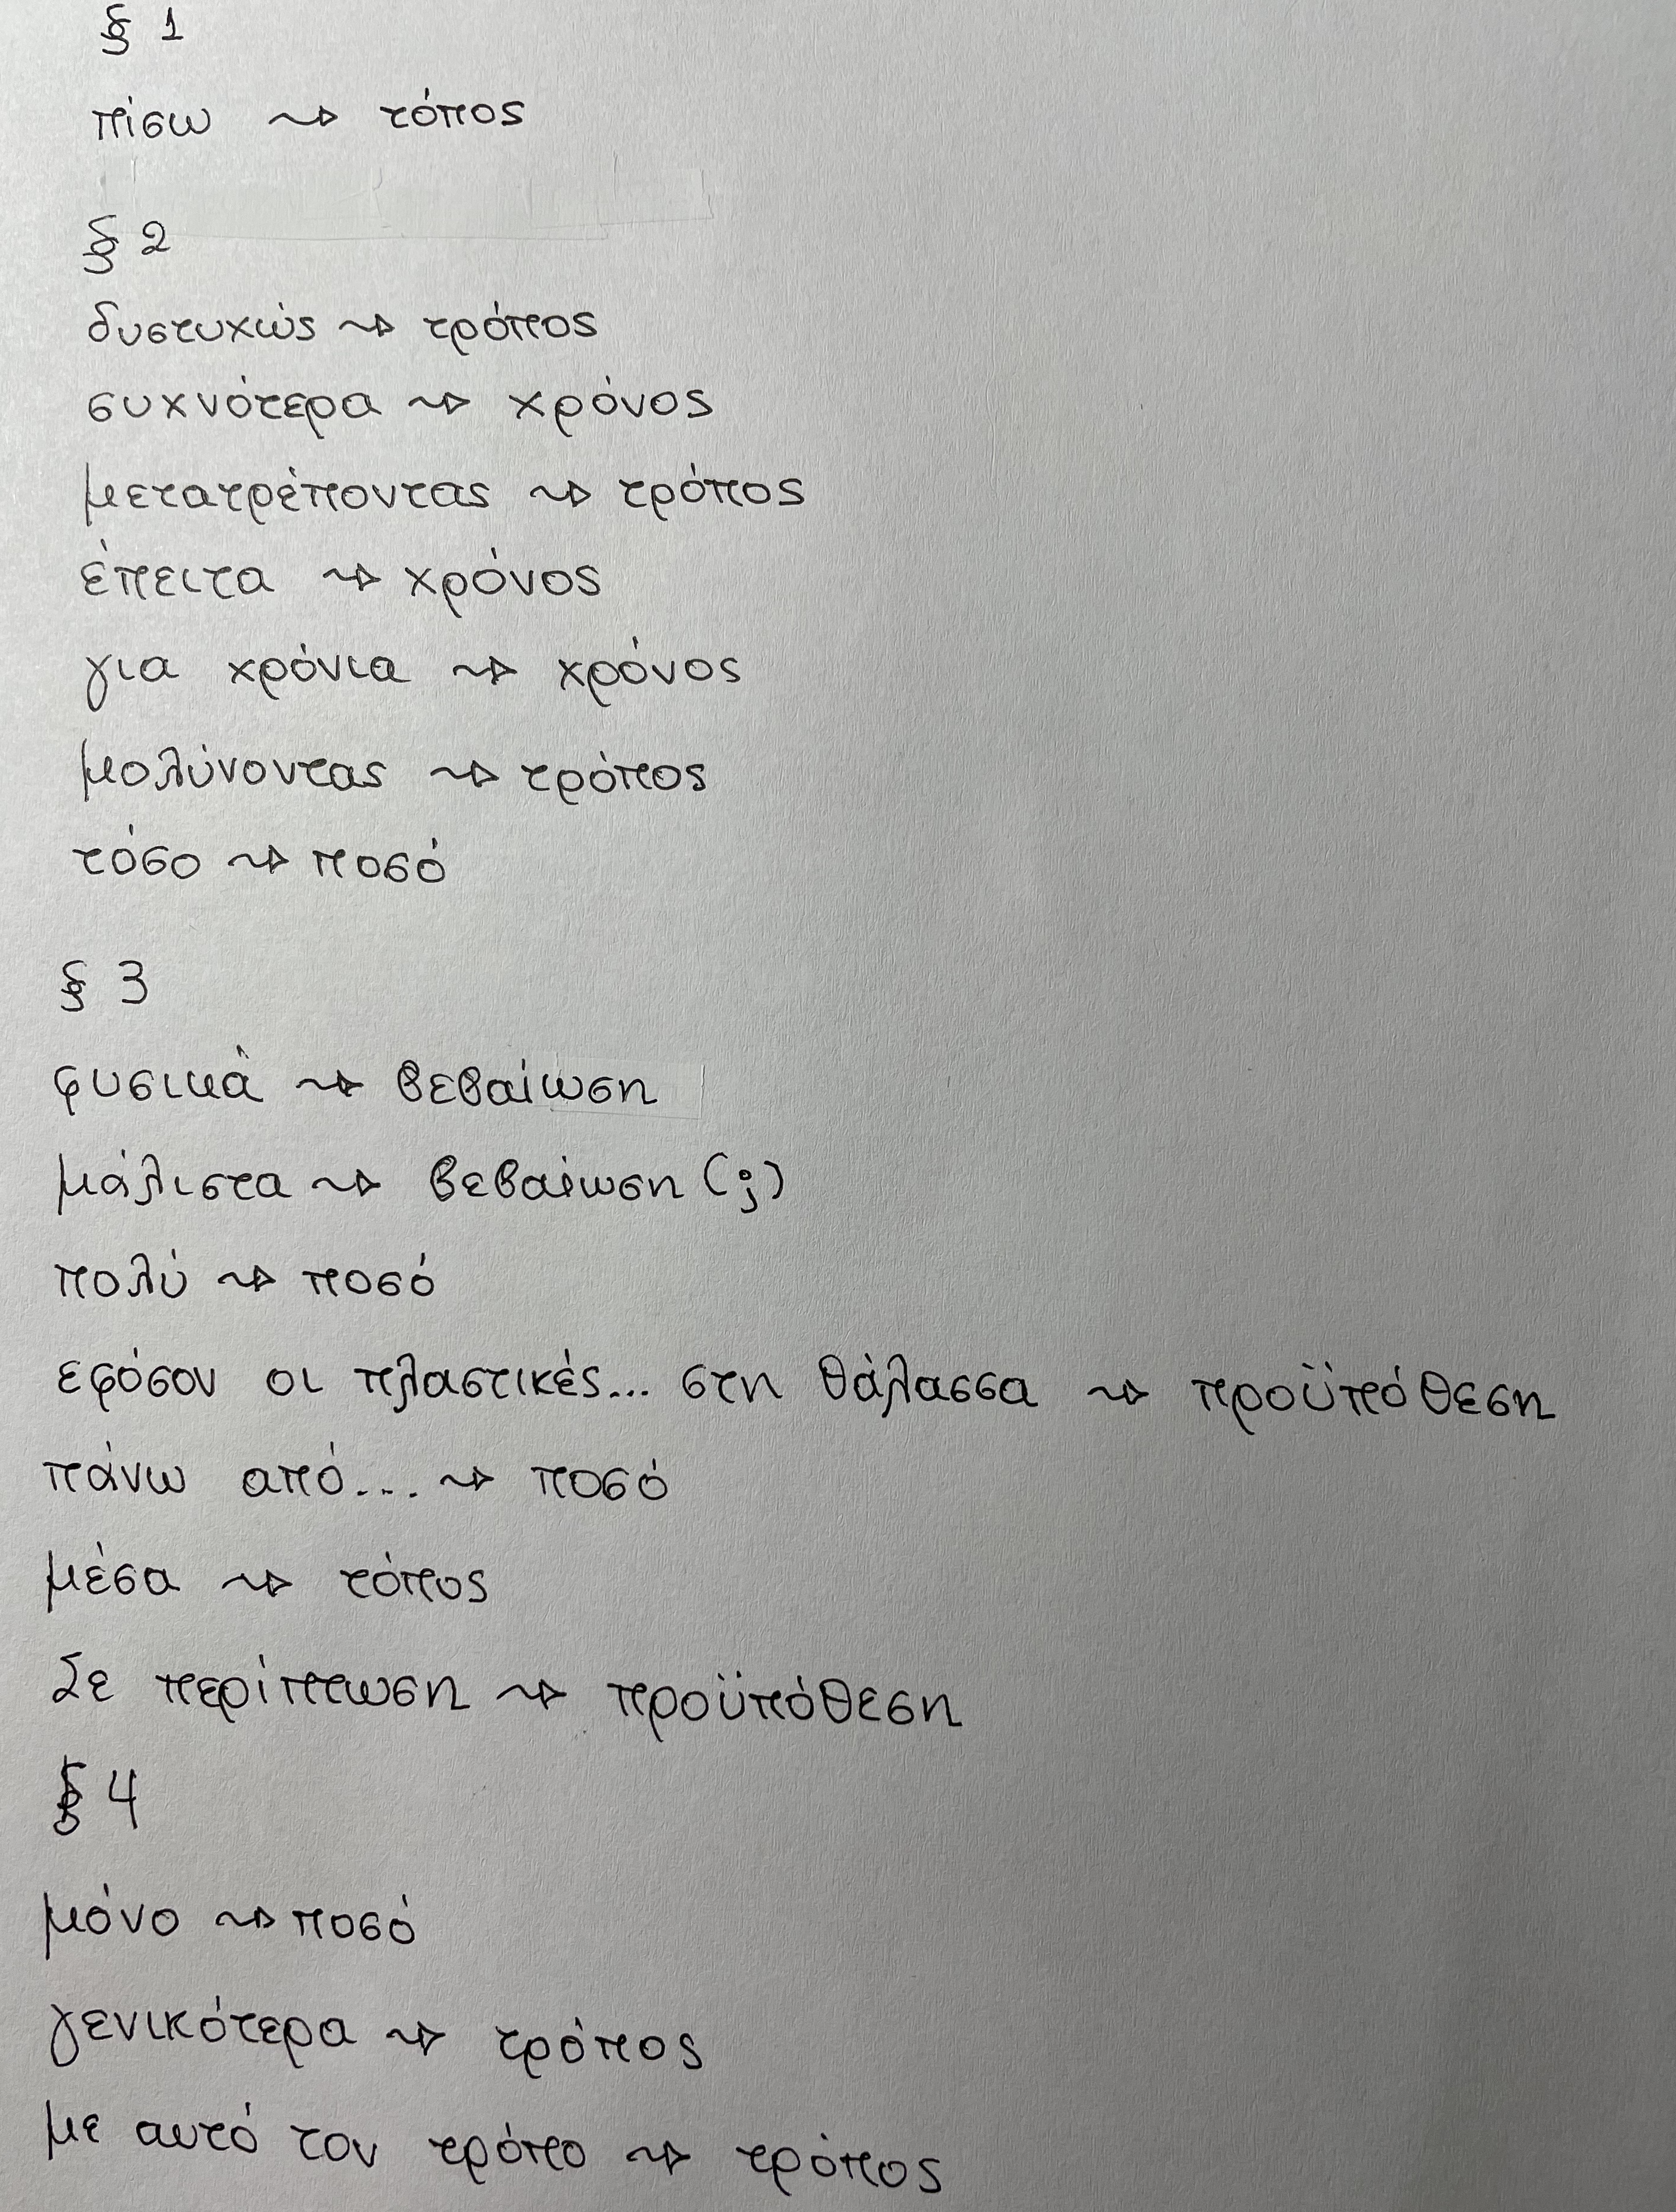 § 1
πίσω ⇝ τόπος
§ 2
δυστυχώς ⇝ τρόπος
συχνότερα ⇝ χρόνος
μετατρέποντας ⇝ τρόπος
έπειτα ⇝ χρόνος
για χρόνια ⇝ χρόνος
μολύνοντας ⇝ τρόπος
τόσο ⇝ ποσό
§ 3
φυσικά ⇝ βεβαίωση
μάλιστα ⇝ βεβαίωση (;)
πολύ ⇝ ποσό
εφόσον οι πλαστικές... στη θάλασσα ⇝ προϋπόθεση
πάνω από... ⇝ ποσό
μέσα ⇝ τόπος
Σε περίπτωση ⇝ προϋπόθεση
§ 4
μόνο ⇝ ποσό
γενικότερα ⇝ τρόπος
με αυτό τον τρόπο ⇝ τρόπος